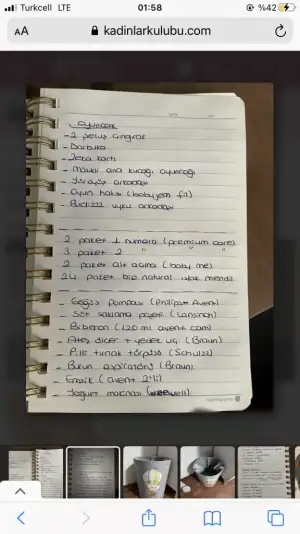 Turkcell LTE
01:58
%42
AA
kadinlarkulubu.com
oyuncak
- 2 peluş çıngırak
- Darbuka
- Zeka kartı
- ana kucağı oyuncağı
- arkadaşı
- Oyun halısı (babyjem
- uyku arkadaşı
2 paket 1 numara (premium care)
3 paket 2 " "
2 paket alt açma (baby me)
24 paket bio natural ıslak mendil
- Göğüs pompası (Philips Avent)
- Süt saklama poşeti (Lansinoh)
- Biberon (120 ml avent cam)
- Ateş ölçer + yedek uç (Braun)
- Pilli tırnak törpüsü
- Burun aspiratörü (Braun)
- Emzik (avent 2'li)
- Yogurt makinası